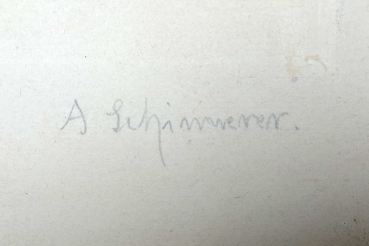 A Schinnerer.